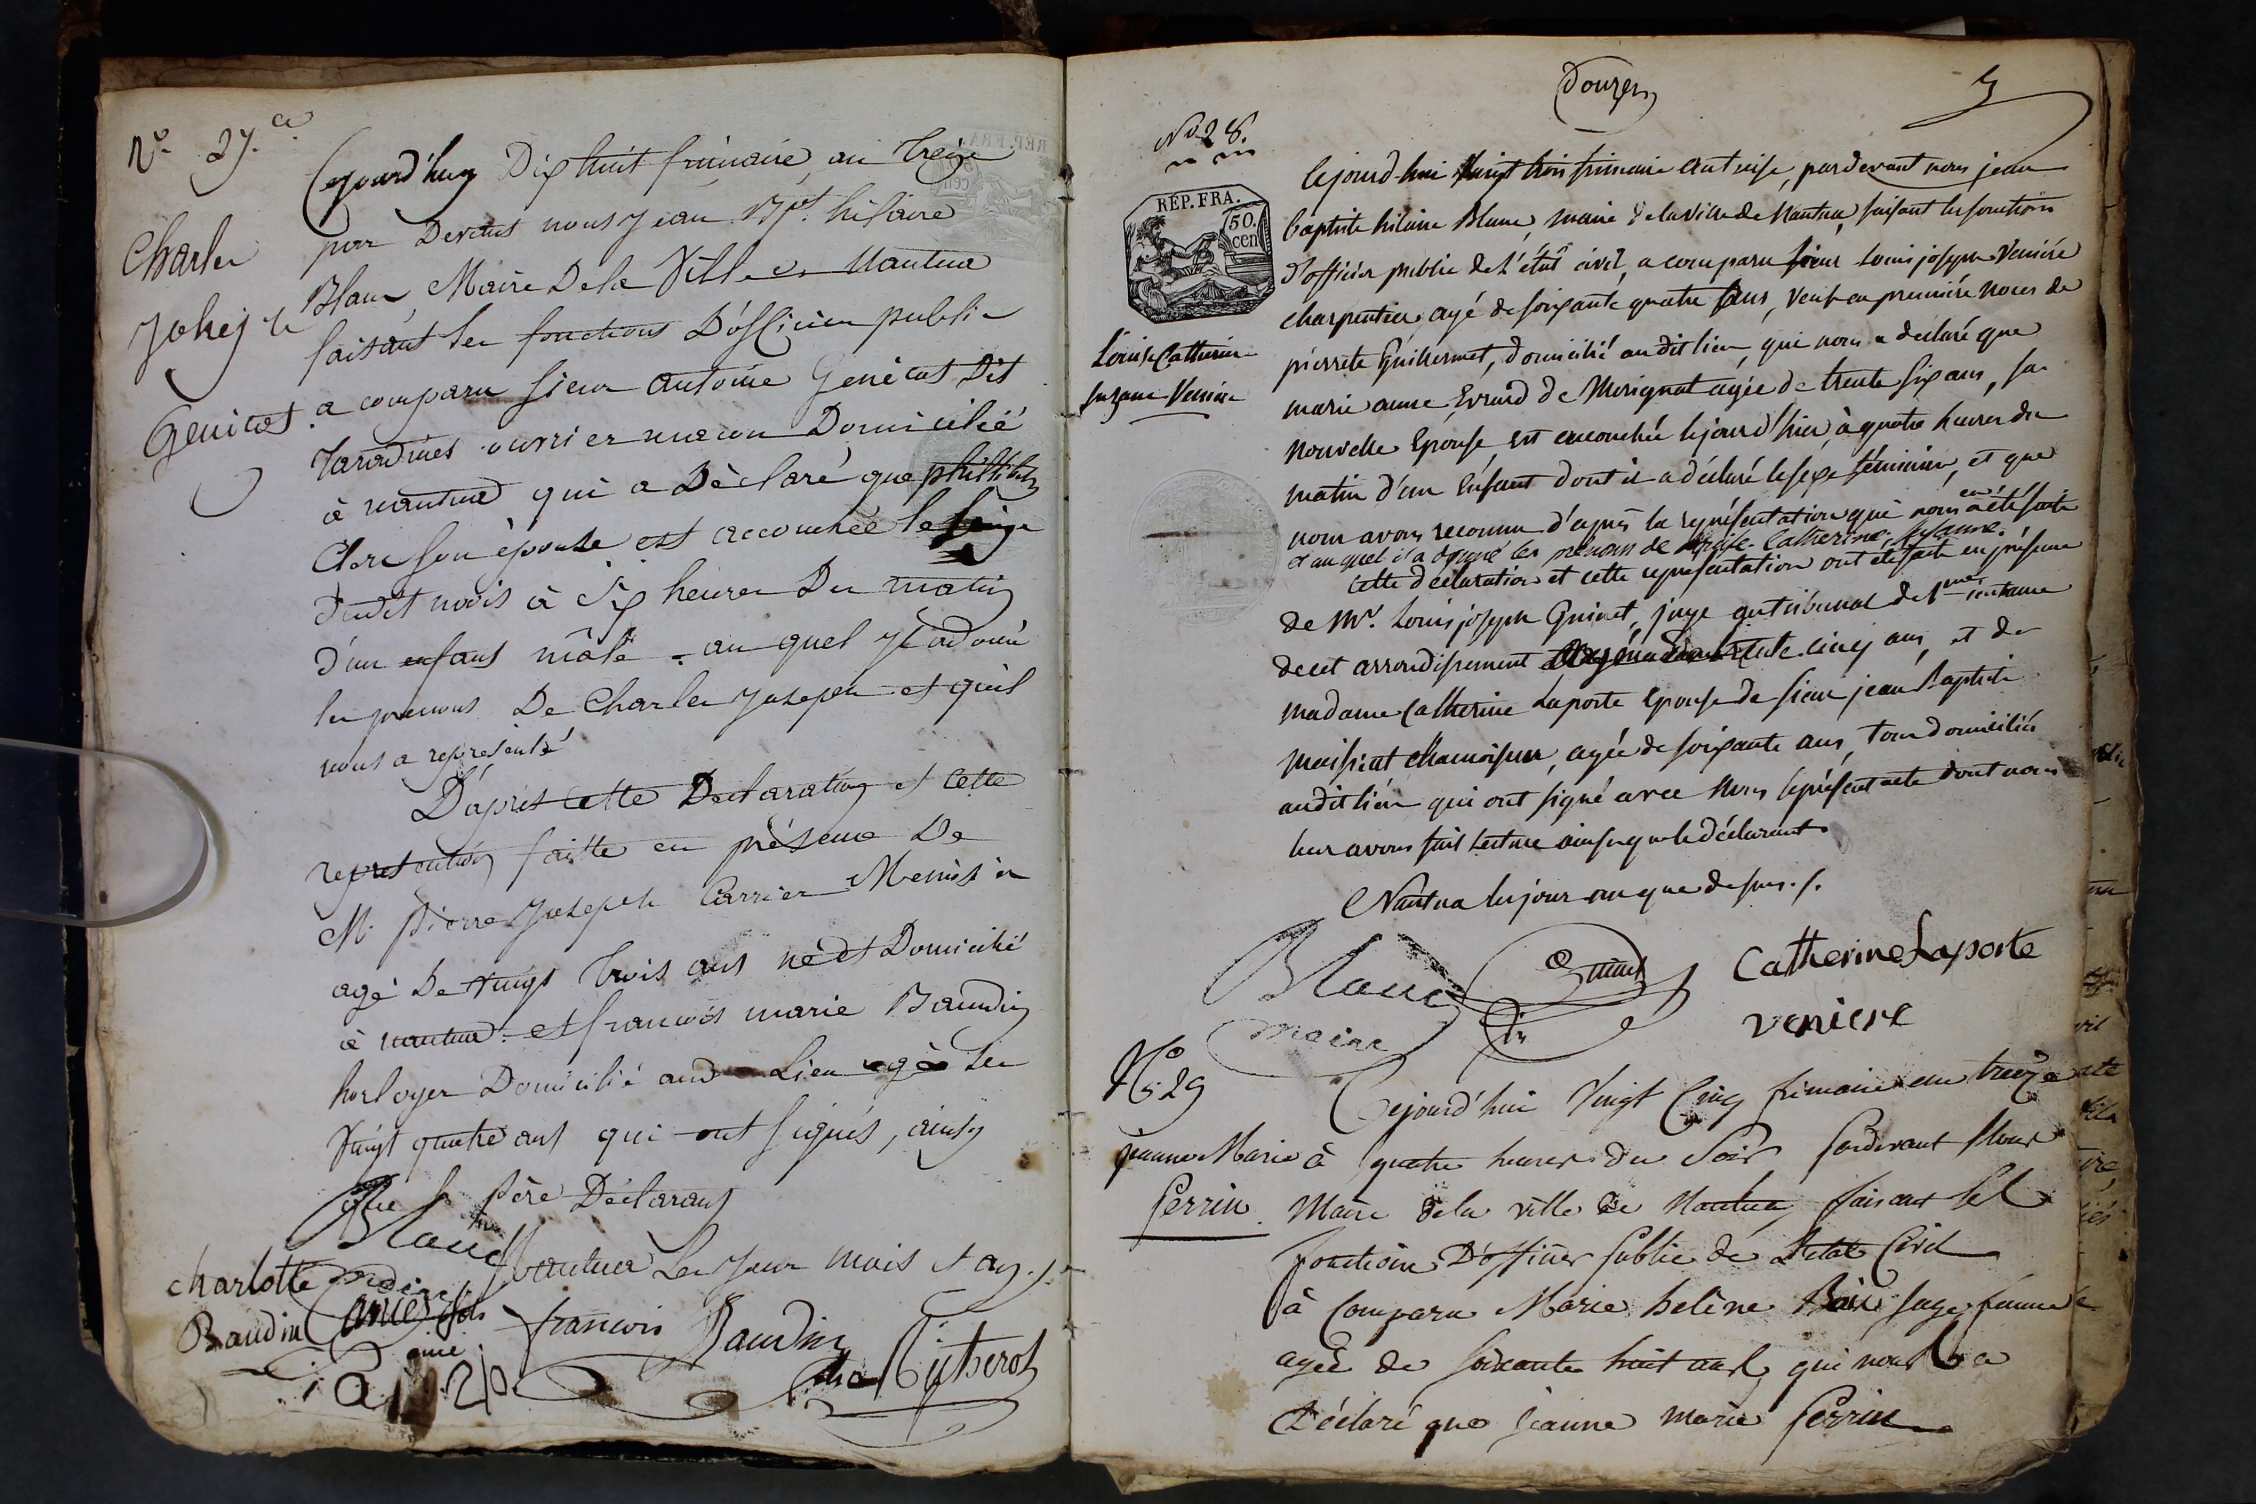 N.o 27.e
Charles
Joheph
Genicot
Cejourd'huy Dix huit frimaire an treize
par Devant nous Jean Bpt. hilaire
Blanc Maire Dela Ville de Nantua
faisant les fonctions D'officier public
a comparu sieur antoine Genicot Dit
ouvrier macon Domicilié
à nantua qui a Déclaré que philiberte
Clerc son épouse est accouchée le
dudit mois à Six heures Du matin
d'un enfant mâle - au quel il a donné
les prenoms De Charles Joseph et qu'il
nous a représenté
D'après cette Declaration et cette
representation faitte en présence De
M. pierre Joseph Carrier Menuisier
agé De vingt trois ans né et Domicilié
à nantua - et francois marie Baudin
horloger Domicilié aud Lieu agé de
Vingt quatre ans qui ont signés, ainsy
que le père Déclarant
Blanc
maire
Nantua Les Jour mois et an
charlotte
Baudin
francois Baudin
Douze
N.o 28.
RÉP. FRA.
50.
cen
Louise Catherine
Suzanne Veniere
Cejourd-hui vingt trois frimaire an treise, pardevant nous jean
baptiste hilaire Blanc, maire de la ville de Nantua, faisant les fonctions
d'officier public de l'état civil, a comparu sieur Louis joseph Veniere
charpentier agé de soixante quatre ans, veuf en premiére noces de
pierrete Guillermet, domicilié au dit lieu, qui nous a declaré que
marie anne Evrard de Morignat agée de trente six ans, sa
nouvelle Epouse, est accouchée le jour d'hier, à quatre heures du
matin d'un Enfant dont il a déclaré le sexe féminin, et que
nous avons reconnu d'après la représentation qui nous en a été faite
et au quel il a donné les prénoms de Louise-Catherine-Susanne.
Cette déclaration et cette representation ont été faite en présence
de Mr. Louis joseph Guinet, juge au tribunal de 1.re instance
de cet arrondissement agé de trente cinq ans, et de
madame Catherine Laporte Epouse de sieur jean Baptiste
Maissiat Chamoiseur, agée de soixante ans, tous domiciliés
audit lieu qui ont signé avec nous le présent acte dont nous
leur avons fait Lecture ainsi que le déclarant
Nantua les jour an que dessus.
Blanc
maire
Guinet
Catherine Laporte
veniere
N.o 29
jeanne Marie
Perrin
Cejourd'hui Vingt Cinq frimaire an treize
à quatre heures du Soir pardevant Nous
Maire de la ville de Nantua faisant les
fonctions D'officier Public de L'etat Civil
à Comparu Marie helène sage femme
agée de soixante huit ans, qui nous a
Déclaré que Jeanne marie Perrin